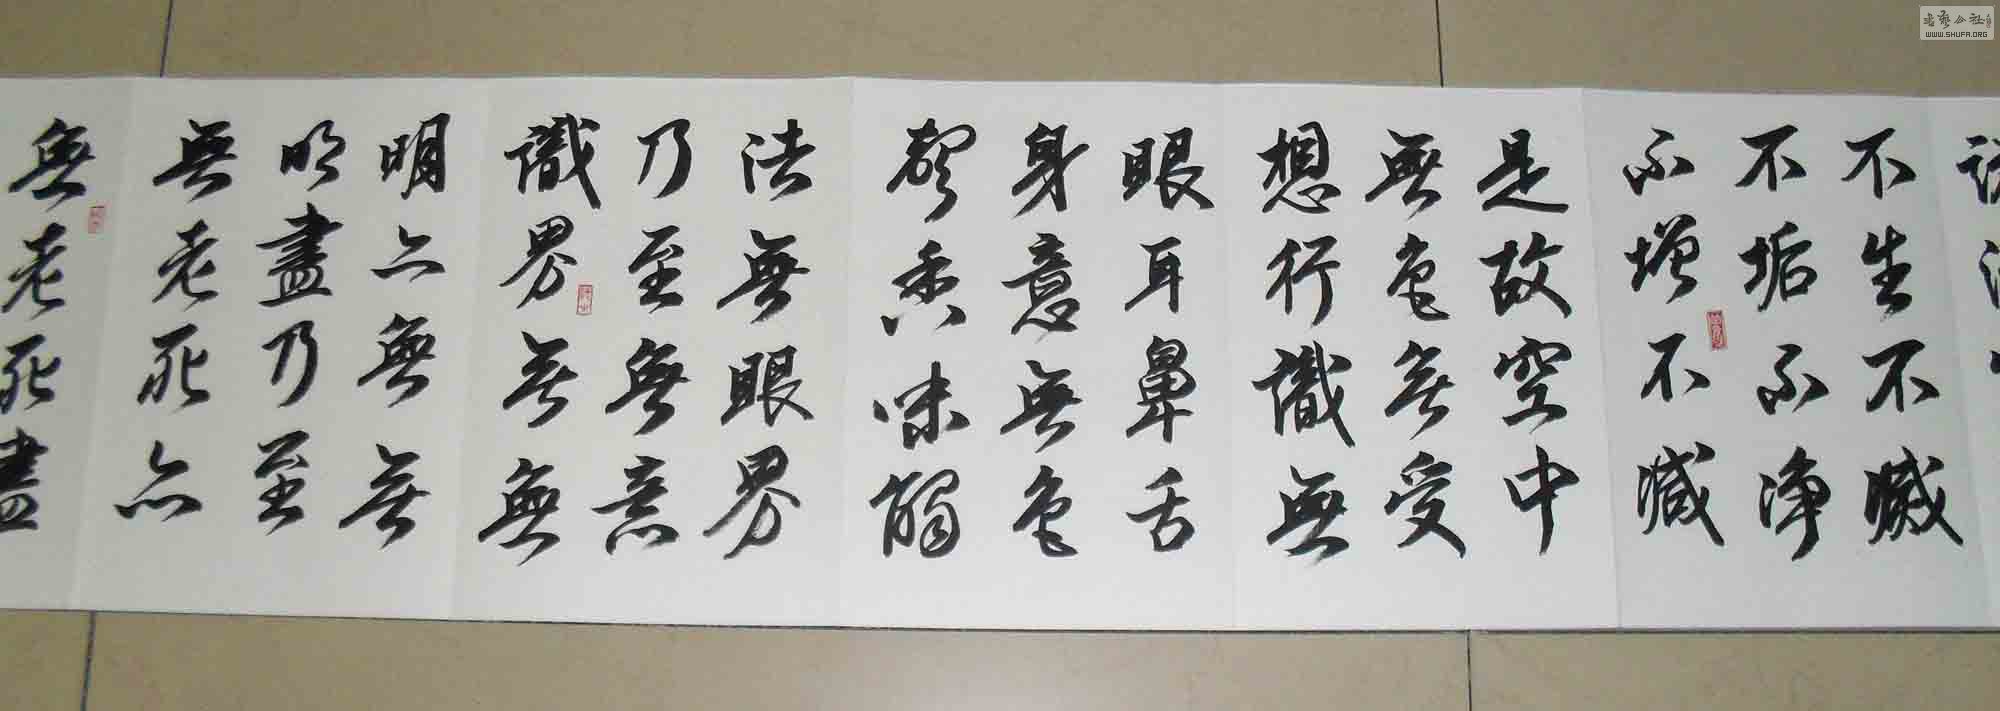 不生不滅
不垢不净
不增不減
是故空中
無色無受
想行識無
眼耳鼻舌
身意無色
聲香味觸
法無眼界
乃至無意
識界無無
明亦無無
明盡乃至
無老死亦
無老死盡
WWW.SHUFA.ORG